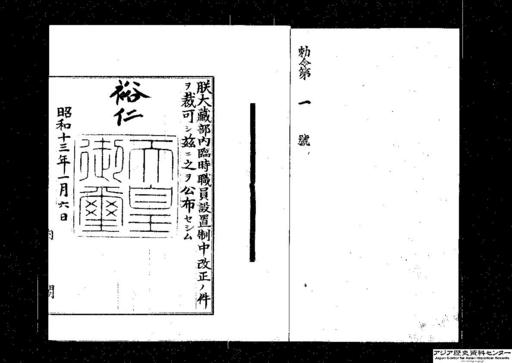 勅令第一號
朕大藏部內臨時職員設置制中改正ノ件
ヲ裁可シ茲ニ之ヲ公布セシム
裕仁
天皇御璽
昭和十三年一月六日
アジア歴史資料センター
Japan Center for Asian Historical Records